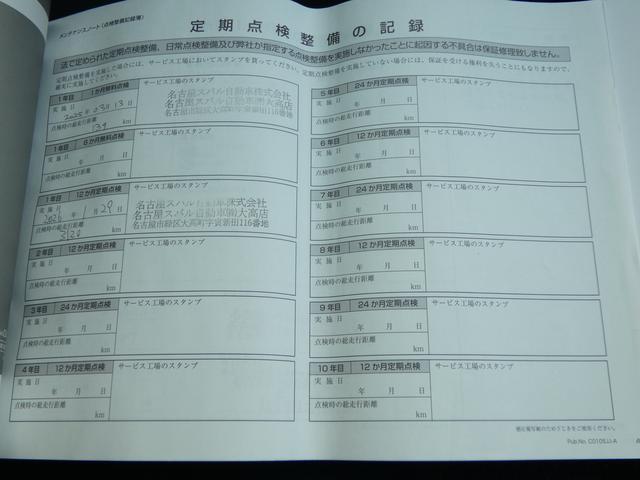 メンテナンスノート(点検整備記録簿)
定期点検整備の記録
法で定められた定期点検整備、日常点検整備及び弊社が指定する点検整備を実施しなかったことに起因する不具合は保証修理致しません。
定期点検整備を実施した場合には、サービス工場においてスタンプを貰ってください。定期点検整備を実施していない場合には、保証を受ける権利を失うことにもなりますので、
確実に実施してください。
1年目 1か月無料点検 サービス工場のスタンプ
実施日
2025年03月13日
点検時の総走行距離
139 km
名古屋スバル自動車株式会社
名古屋スバル自動車㈱大高店
1年目 6か月無料点検 サービス工場のスタンプ
実施日
年 月 日
点検時の総走行距離
km
1年目 12か月定期点検 サービス工場のスタンプ
実施日
2026年1月29日
点検時の総走行距離
km
名古屋スバル自動車株式会社
名古屋スバル自動車㈱大高店
名古屋市緑区大高町字寅新田116番地
2年目 12か月定期点検 サービス工場のスタンプ
実施日
年 月 日
点検時の総走行距離
km
3年目 24か月定期点検 サービス工場のスタンプ
実施日
年 月 日
点検時の総走行距離
km
4年目 12か月定期点検 サービス工場のスタンプ
実施日
年 月 日
点検時の総走行距離
km
5年目 24か月定期点検 サービス工場のスタンプ
実施日
年 月 日
点検時の総走行距離
km
6年目 12か月定期点検 サービス工場のスタンプ
実施日
年 月 日
点検時の総走行距離
km
7年目 24か月定期点検 サービス工場のスタンプ
実施日
年 月 日
点検時の総走行距離
km
8年目 12か月定期点検 サービス工場のスタンプ
実施日
年 月 日
点検時の総走行距離
km
9年目 24か月定期点検 サービス工場のスタンプ
実施日
年 月 日
点検時の総走行距離
km
10年目 12か月定期点検 サービス工場のスタンプ
実施日
年 月 日
点検時の総走行距離
km
Pub.No. C0105JJ-A